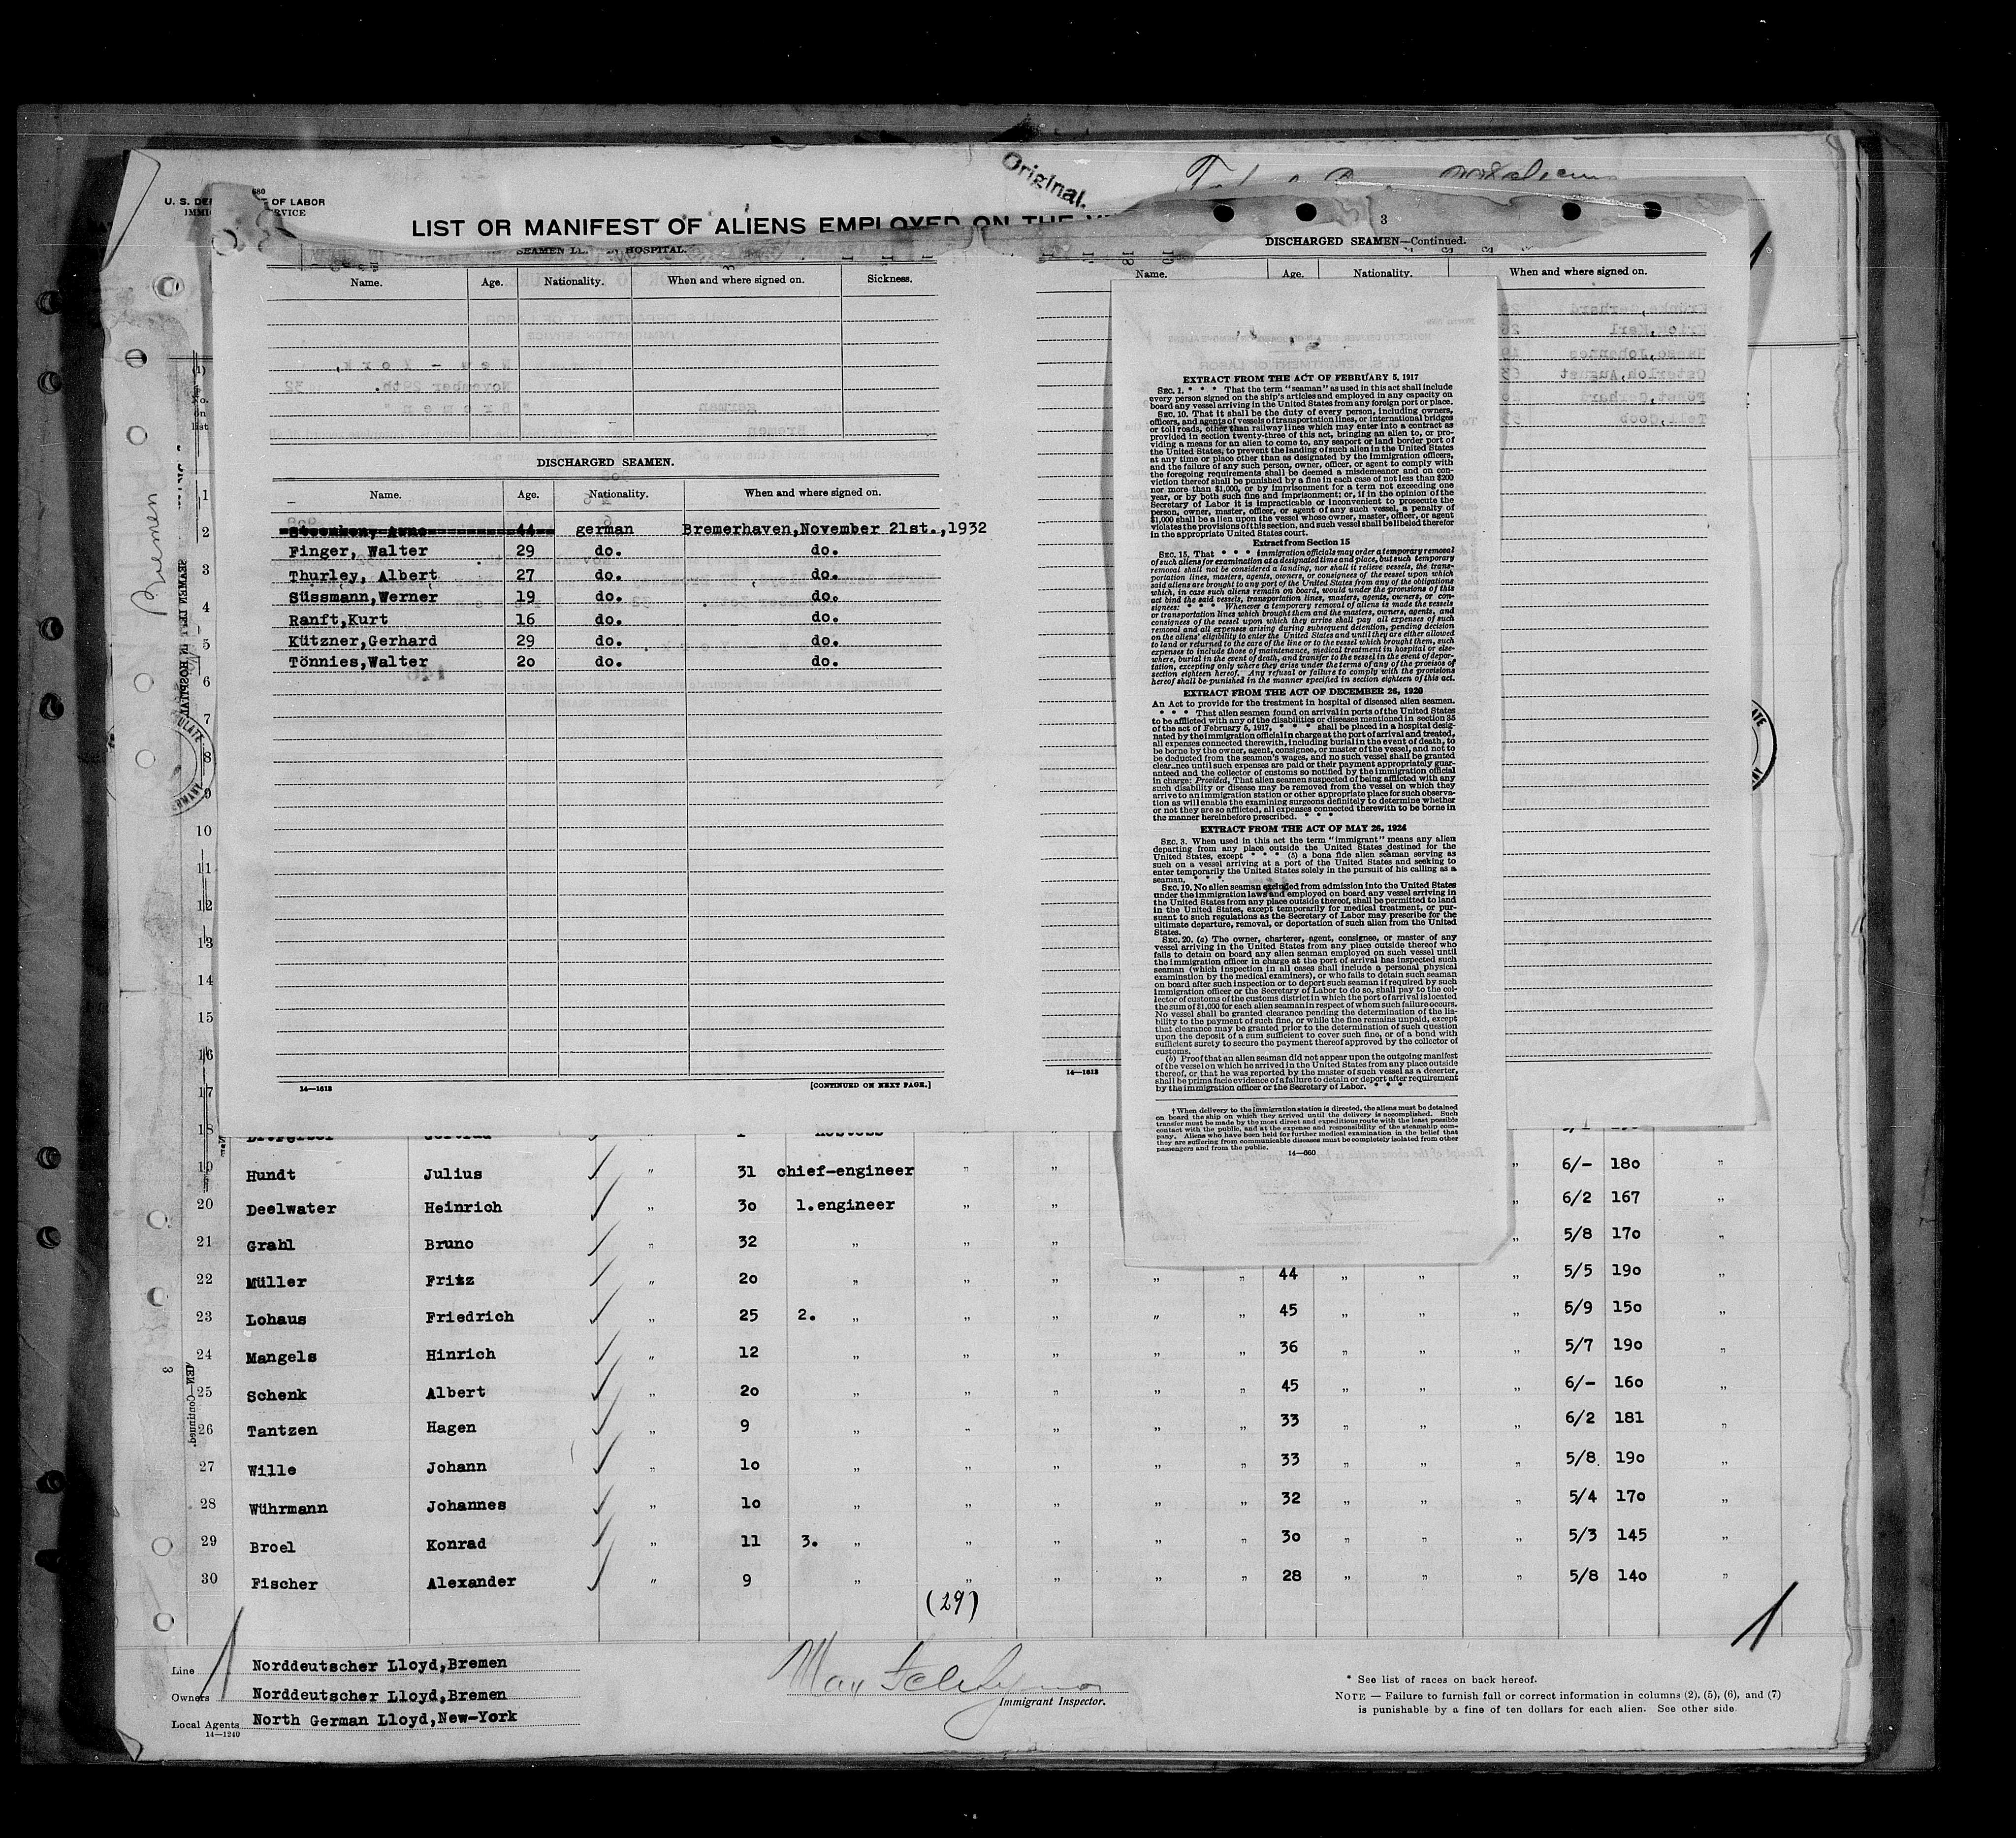 Original.
680
U. S. DE OF LABOR
IMMI RVICE
LIST OR MANIFEST OF ALIENS EMPLOYED ON THE
Bremen
3
SEAMEN HOSPITAL.
Name. Age. Nationality. When and where signed on. Sickness.
DISCHARGED SEAMEN.
Name. Age. Nationality. When and where signed on.
44 german Bremerhaven,November 21st.,1932
Finger, Walter 29 do. do.
Thurley, Albert 27 do. do.
Süssmann,Werner 19 do. do.
Ranft,Kurt 16 do. do.
Kützner,Gerhard 29 do. do.
Tönnies,Walter 2o do. do.
14—1613 [CONTINUED ON NEXT PAGE.]
DISCHARGED SEAMEN—Continued.
Name. Age. Nationality. When and where signed on.
14—1613
EXTRACT FROM THE ACT OF FEBRUARY 5, 1917
SEC. 1. * * * That the term "seaman" as used in this act shall include
every person signed on the ship's articles and employed in any capacity on
board any vessel arriving in the United States from any foreign port or place.
SEC. 10. That it shall be the duty of every person, including owners,
officers, and agents of vessels of transportation lines, or international bridges
or toll roads, other than railway lines which may enter into a contract as
provided in section twenty-three of this act, bringing an alien to, or pro-
viding a means for an alien to come to, any seaport or land border port of
the United States, to prevent the landing of such alien in the United States
at any time or place other than as designated by the immigration officers,
and the failure of any such person, owner, officer, or agent to comply with
the foregoing requirements shall be deemed a misdemeanor and on con-
viction thereof shall be punished by a fine in each case of not less than $200
nor more than $1,000, or by imprisonment for a term not exceeding one
year, or by both such fine and imprisonment; or, if in the opinion of the
Secretary of Labor it is impracticable or inconvenient to prosecute the
person, owner, master, officer, or agent of any such vessel, a penalty of
$1,000 shall be a lien upon the vessel whose owner, master, officer, or agent
violates the provisions of this section, and such vessel shall be libeled therefor
in the appropriate United States court.
Extract from Section 15
SEC. 15. That * * * immigration officials may order a temporary removal
of such aliens for examination at a designated time and place, but such temporary
removal shall not be considered a landing, nor shall it relieve vessels, the trans-
portation lines, masters, agents, owners, or consignees of the vessel upon which
said aliens are brought to any port of the United States from any of the obligations
which, in case such aliens remain on board, would under the provisions of this
act bind the said vessels, transportation lines, masters, agents, owners, or con-
signees: * * * Whenever a temporary removal of aliens is made the vessels
or transportation lines which brought them and the masters, owners, agents, and
consignees of the vessel upon which they arrive shall pay all expenses of such
removal and all expenses arising during subsequent detention, pending decision
on the aliens' eligibility to enter the United States and until they are either allowed
to land or returned to the care of the line or to the vessel which brought them, such
expenses to include those of maintenance, medical treatment in hospital or else-
where, burial in the event of death, and transfer to the vessel in the event of depor-
tation, excepting only where they arise under the terms of any of the provisos of
section eighteen hereof. Any refusal or failure to comply with the provisions
hereof shall be punished in the manner specified in section eighteen of this act.
EXTRACT FROM THE ACT OF DECEMBER 26, 1920
An Act to provide for the treatment in hospital of diseased alien seamen.
* * * * That alien seamen found on arrival in ports of the United States
to be afflicted with any of the disabilities or diseases mentioned in section 35
of the act of February 5, 1917, * * * shall be placed in a hospital desig-
nated by the immigration official in charge at the port of arrival and treated,
all expenses connected therewith, including burial in the event of death, to
be borne by the owner, agent, consignee, or master of the vessel, and not to
be deducted from the seamen's wages, and no such vessel shall be granted
clearance until such expenses are paid or their payment appropriately guar-
anteed and the collector of customs so notified by the immigration official
in charge: Provided, That alien seamen suspected of being afflicted with any
such disability or disease may be removed from the vessel on which they
arrive to an immigration station or other appropriate place for such observa-
tion as will enable the examining surgeons definitely to determine whether
or not they are so afflicted, all expenses connected therewith to be borne in
the manner hereinbefore prescribed. * * *
EXTRACT FROM THE ACT OF MAY 26, 1924
SEC. 3. When used in this act the term "immigrant" means any alien
departing from any place outside the United States destined for the
United States, except * * * (5) a bona fide alien seaman serving as
such on a vessel arriving at a port of the United States and seeking to
enter temporarily the United States solely in the pursuit of his calling as a
seaman. * * *
SEC. 19. No alien seaman excluded from admission into the United States
under the immigration laws and employed on board any vessel arriving in
the United States from any place outside thereof, shall be permitted to land
in the United States, except temporarily for medical treatment, or pur-
suant to such regulations as the Secretary of Labor may prescribe for the
ultimate departure, removal, or deportation of such alien from the United
States.
SEC. 20. (a) The owner, charterer, agent, consignee, or master of any
vessel arriving in the United States from any place outside thereof who
fails to detain on board any alien seaman employed on such vessel until
the immigration officer in charge at the port of arrival has inspected such
seaman (which inspection in all cases shall include a personal physical
examination by the medical examiners), or who fails to detain such seaman
on board after such inspection or to deport such seaman if required by such
immigration officer or the Secretary of Labor to do so, shall pay to the col-
lector of customs of the customs district in which the port of arrival is located
the sum of $1,000 for each alien seaman in respect of whom such failure occurs.
No vessel shall be granted clearance pending the determination of the lia-
bility to the payment of such fine, or while the fine remains unpaid, except
that clearance may be granted prior to the determination of such question
upon the deposit of a sum sufficient to cover such fine, or of a bond with
sufficient surety to secure the payment thereof approved by the collector of
customs.
(b) Proof that an alien seaman did not appear upon the outgoing manifest
of the vessel on which he arrived in the United States from any place outside
thereof, or that he was reported by the master of such vessel as a deserter,
shall be prima facie evidence of a failure to detain or deport after requirement
by the immigration officer or the Secretary of Labor. * * *
† When delivery to the immigration station is directed, the aliens must be detained
on board the ship on which they arrived until the delivery is accomplished. Such
transfer must be made by the most direct and expeditious route with the least possible
contact with the public, and at the expense and responsibility of the steamship com-
pany. Aliens who have been held for further medical examination in the belief that
they are suffering from communicable diseases must be completely isolated from other
passengers and from the public.
14—660
(1)
No.
on
list
1
2
3
4
5
6
7
8
9
10
11
12
13
14
15
16
17
18
19 Hundt Julius " 31 chief-engineer " " " 6/- 18o "
20 Deelwater Heinrich " 3o 1.engineer " " " 6/2 167 "
21 Grahl Bruno " 32 " " " " 5/8 17o "
22 Müller Fritz " 2o " " " " " 44 " " " 5/5 19o "
23 Lohaus Friedrich " 25 2. " " " " " 45 " " " 5/9 15o "
24 Mangels Hinrich " 12 " " " " " 36 " " " 5/7 19o "
25 Schenk Albert " 2o " " " " " 45 " " " 6/- 16o "
26 Tantzen Hagen " 9 " " " " " 33 " " " 6/2 181 "
27 Wille Johann " 1o " " " " " 33 " " " 5/8 19o "
28 Wührmann Johannes " 1o " " " " " 32 " " " 5/4 17o "
29 Broel Konrad " 11 3. " " " " " 3o " " " 5/3 145 "
30 Fischer Alexander " 9 " " " " " 28 " " " 5/8 14o "
(29)
Line Norddeutscher Lloyd,Bremen
Owners Norddeutscher Lloyd,Bremen
Local Agents North German Lloyd,New-York
14—1240
Max
Immigrant Inspector.
* See list of races on back hereof.
NOTE — Failure to furnish full or correct information in columns (2), (5), (6), and (7)
is punishable by a fine of ten dollars for each alien. See other side.